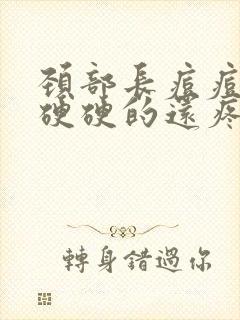 頸部長痘痘
硬硬的還疼
轉身錯過你